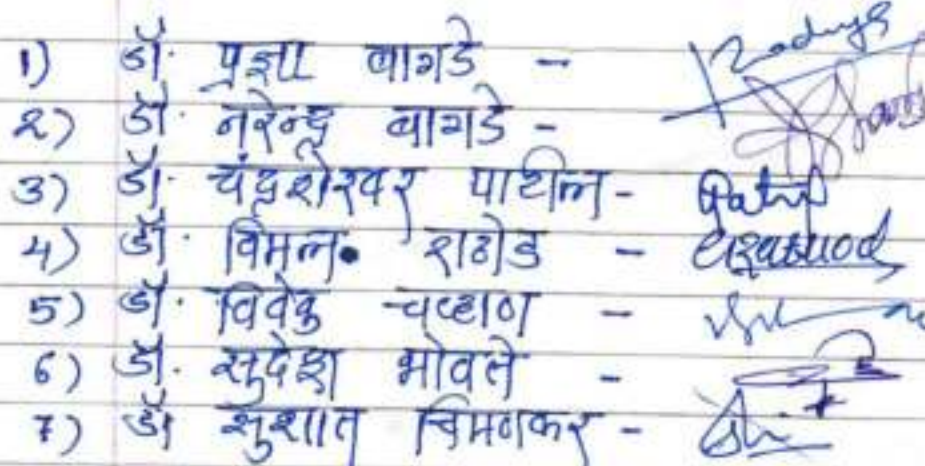 1) डॉ. प्रज्ञा बागडे -
2) डॉ. नरेन्द्र बागडे -
3) डॉ. चंद्रशेखर पाटील - Patil
4) डॉ. विमल राठोड -
5) डॉ. विवेक चव्हाण -
6) डॉ. सुदेश भोवते -
7) डॉ सुशांत चिमणकर -